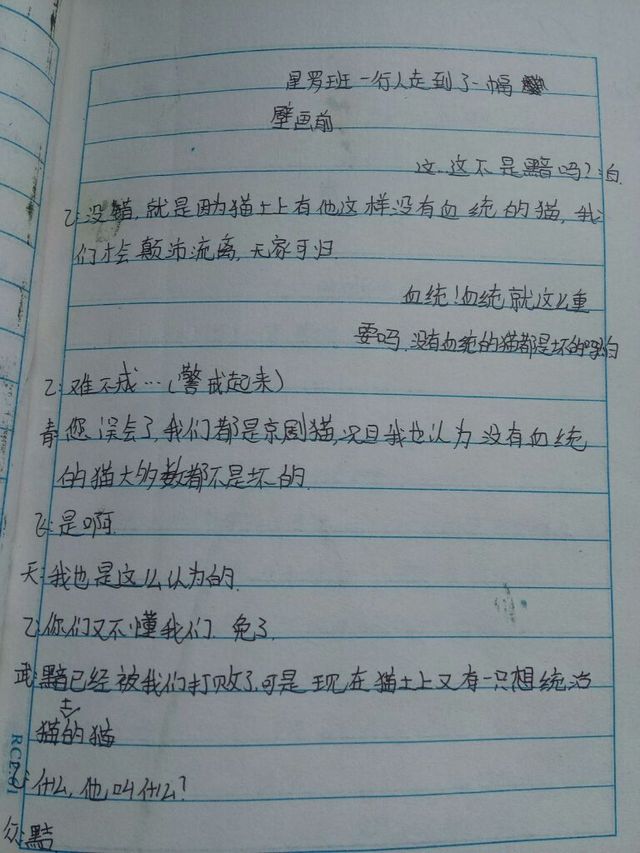 星罗班一行人走到了一幅
壁画前
这..这不是黯吗?:白
乙:没错,就是因为猫土上有他这样没有血统的猫,我
们才会颠沛流离,无家可归.
血统!血统就这么重
要吗.没有血统的猫都是坏的吗:白
乙:难不成…(警戒起来)
青:您误会了,我们都是京剧猫,况且我也认为没有血统
的猫大多数都不是坏的.
飞:是啊.
天:我也是这么认为的.
乙:你们又不懂我们.免了.
武:黯已经被我们打败了,可是现在猫土上又有一只想统治
猫土的猫
什么,他叫什么?
众:黠